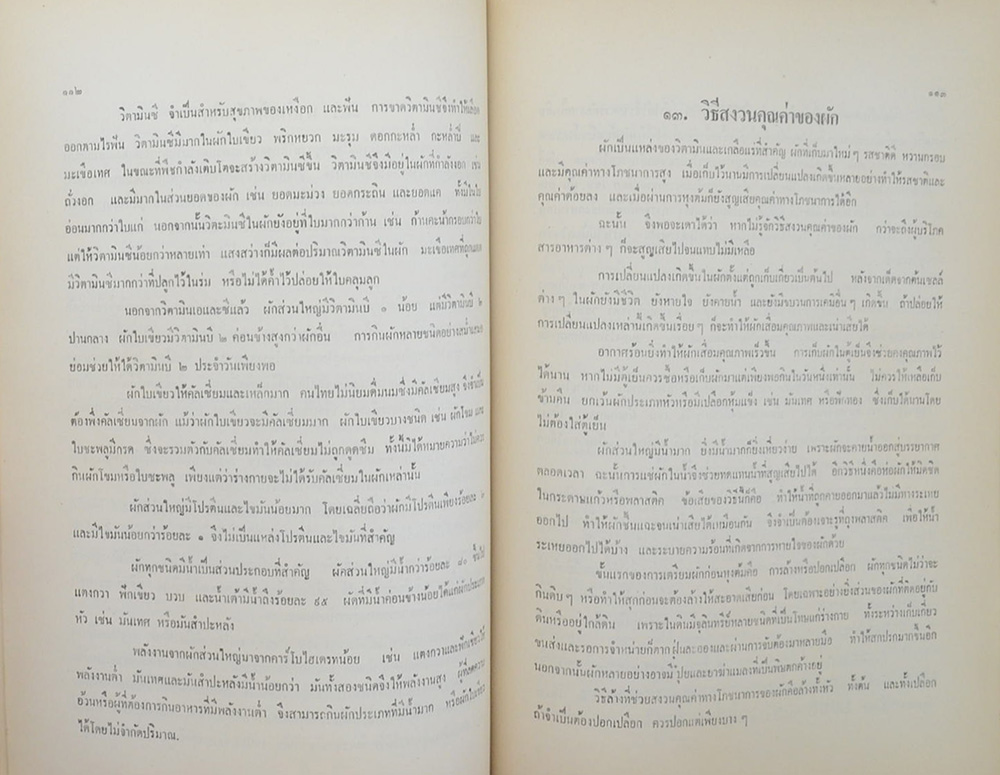 ๑๑๒
วิตามินซี จำเป็นสำหรับสุขภาพของเหงือก และฟัน การขาดวิตามินซีจึงทำให้เลือด
ออกตามไรฟัน วิตามินซีมีมากในผักใบเขียว พริกหยวก มะรุม ดอกกะหล่ำ กะหล่ำปี และ
มะเขือเทศ ในขณะที่พืชกำลังเติบโตจะสร้างวิตามินซีขึ้น วิตามินซีจึงมีอยู่ในผักที่กำลังงอก เช่น
ถั่วงอก และมีมากในส่วนยอดของผัก เช่น ยอดมะม่วง ยอดกระถิน และยอดแค ทั้งมีในใบ
อ่อนมากกว่าใบแก่ นอกจากนั้นวิตะมินซีในผักยังอยู่ที่ใบมากกว่าก้าน เช่น ก้านคะน้ากรอบกว่าใบ
แต่ให้วิตามินซีน้อยกว่าหลายเท่า แสงสว่างก็มีผลต่อปริมาณวิตามินซีในผัก มะเขือเทศที่ถูกแดด
มีวิตามินซีมากกว่าที่ปลูกไว้ในร่ม หรือไม่ได้ค้ำไว้ปล่อยให้ใบคลุมลูก
นอกจากวิตามินเอและซีแล้ว ผักส่วนใหญ่มีวิตามินบี ๑ น้อย แต่มีวิตามินบี ๒
ปานกลาง ผักใบเขียวมีวิตามินบี ๒ ค่อนข้างสูงกว่าผักอื่น การกินผักหลายชนิดอย่างสม่ำเสมอ
ย่อมช่วยให้ได้วิตามินบี ๒ ประจำวันเพียงพอ
ผักใบเขียวให้คัลเซี่ยมและเหล็กมาก คนไทยไม่นิยมดื่มนมซึ่งมีคัลเซี่ยมสูง จึงจำเป็น
ต้องพึ่งคัลเซี่ยมจากผัก แม้ว่าผักใบเขียวจะมีคัลเซี่ยมมาก ผักใบเขียวบางชนิด เช่น ผักโขม และ
ใบชะพลูมีกรด ซึ่งจะรวมตัวกับคัลเซี่ยมทำให้คัลเซี่ยมไม่ถูกดูดซึม ทั้งนี้มิได้หมายความว่าไม่ควร
กินผักโขมหรือใบชะพลู เพียงแต่ว่าร่างกายจะไม่ได้รับคัลเซี่ยมในผักเหล่านั้น
ผักส่วนใหญ่มีโปรตีนและไขมันน้อยมาก โดยเฉลี่ยถือว่าผักมีโปรตีนเพียงร้อยละ
และมีไขมันน้อยกว่าร้อยละ ๑ จึงไม่เป็นแหล่งโปรตีนและไขมันที่สำคัญ
ผักทุกชนิดมีน้ำเป็นส่วนประกอบที่สำคัญ ผัคส่วนใหญ่มีน้ำกว่าร้อยละ ๘๐ ขึ้นไป
แตงกวา ฟักเขียว บวบ และน้ำเต้ามีน้ำถึงร้อยละ ๙๕ ผัดที่มีน้ำค่อนข้างน้อยได้แก่ผักประเภท
หัว เช่น มันเทศ หรือมันสำปะหลัง
พลังงานจากผักส่วนใหญ่มาจากคาร์โบไฮเดรทน้อย เช่น แตงกวาและฟักเขียวให้
พลังงานต่ำ มันเทศและมันสำปะหลังมีน้ำน้อยกว่า มันทั้งสองชนิดจึงให้พลังงานสูง ผู้ที่ลดความ
อ้วนหรือผู้ที่ต้องการกินอาหารที่มีพลังงานต่ำ จึงสามารถกินผักประเภทที่มีน้ำมาก หรือผักใบเขียว
ได้โดยไม่จำกัดปริมาณ.
๑๑๓
๑๓. วิธีสงวนคุณค่าของผัก
ผักเป็นแหล่งของวิตามินและเกลือแร่ที่สำคัญ ผักที่เก็บมาใหม่ๆ รสชาติดี หวานกรอบ
และมีคุณค่าทางโภชนาการสูง เมื่อเก็บไว้นานมีการเปลี่ยนแปลงเกิดขึ้นหลายอย่างทำให้รสชาติและ
คุณค่าด้อยลง และเมื่อผ่านการหุงต้มก็ยังสูญเสียคุณค่าทางโภชนาการได้อีก
ฉะนั้น จึงพอจะเดาได้ว่า หากไม่รู้จักวิธีสงวนคุณค่าของผัก กว่าจะถึงผู้บริโภค
สารอาหารต่าง ๆ ก็จะสูญเสียไปจนแทบไม่มีเหลือ
การเปลี่ยนแปลงเกิดขึ้นในผักตั้งแต่ถูกเก็บเกี่ยวเป็นต้นไป หลังจากเด็ดจากต้นเซลล์
ต่าง ๆ ในผักยังมีชีวิต ยังหายใจ ยังคายน้ำ และยังมีขบวนการเคมีอื่น ๆ เกิดขึ้น ถ้าปล่อยให้
การเปลี่ยนแปลงเหล่านี้เกิดขึ้นเรื่อย ๆ ก็จะทำให้ผักเสื่อมคุณภาพและเน่าเสียได้
อากาศร้อนยิ่งทำให้ผักเสื่อมคุณภาพเร็วขึ้น การเก็บผักในตู้เย็นจึงช่วยคงคุณภาพไว้
ได้นาน หากไม่มีตู้เย็นควรซื้อหรือเก็บผักมาแต่เพียงพอกินในวันหนึ่งเท่านั้น ไม่ควรให้เหลือเก็บ
ข้ามคืน ยกเว้นผักประเภทหัวหรือมีเปลือกหุ้มแข็ง เช่น มันเทศ หรือฟักทอง ซึ่งเก็บได้นานโดย
ไม่ต้องใส่ตู้เย็น
ผักส่วนใหญ่มีน้ำมาก ยิ่งมีน้ำมากก็ยิ่งเหี่ยวง่าย เพราะผักจะคายน้ำออกสู่บรรยากาศ
ตลอดเวลา ฉะนั้นการแช่ผักในน้ำจึงช่วยทดแทนน้ำที่สูญเสียไปได้ อีกวิธีหนึ่งคือห่อผักให้มิดชิด
ในกระดาษแก้วหรือพลาสติค ข้อเสียของวิธีนี้ก็คือ ทำให้น้ำที่ถูกคายออกมาแล้วไม่มีทางระเหย
ออกไป ทำให้ผักชื้นแฉะจนเน่าเสียได้เหมือนกัน จึงจำเป็นต้องเจาะรูที่ถุงพลาสติค เพื่อให้น้ำ
ระเหยออกไปได้บ้าง และระบายความร้อนที่เกิดจากการหายใจของผักด้วย
ขั้นแรกของการเตรียมผักก่อนหุงต้มคือ การล้างหรือปอกเปลือก ผักทุกชนิดไม่ว่าจะ
กินดิบๆ หรือทำให้สุกก่อนจะต้องล้างให้สะอาดเสียก่อน โดยเฉพาะอย่างยิ่งส่วนของผักที่ติดอยู่กับ
ดินหรืออยู่ใกล้ดิน เพราะในดินมีจุลินทรีย์หลายชนิดที่เป็นโทษแก่ร่างกาย ทั้งระหว่างเก็บเกี่ยว
ขนส่งและรอการจำหน่ายก็ตาก ฝุ่นละอองและผ่านการจับต้องมาหลายมือ ทำให้สกปรกมากขึ้นอีก
นอกจากนั้นผักหลายอย่างอาจมีปุ๋ยและยาฆ่าแมลงที่เป็นพิษตกค้างอยู่
วิธีล้างที่ช่วยสงวนคุณค่าทางโภชนาการของผักคือล้างทั้งหัว ทั้งต้น และทั้งเปลือก
ถ้าจำเป็นต้องปอกเปลือก ควรปอกแต่เพียงบาง ๆ